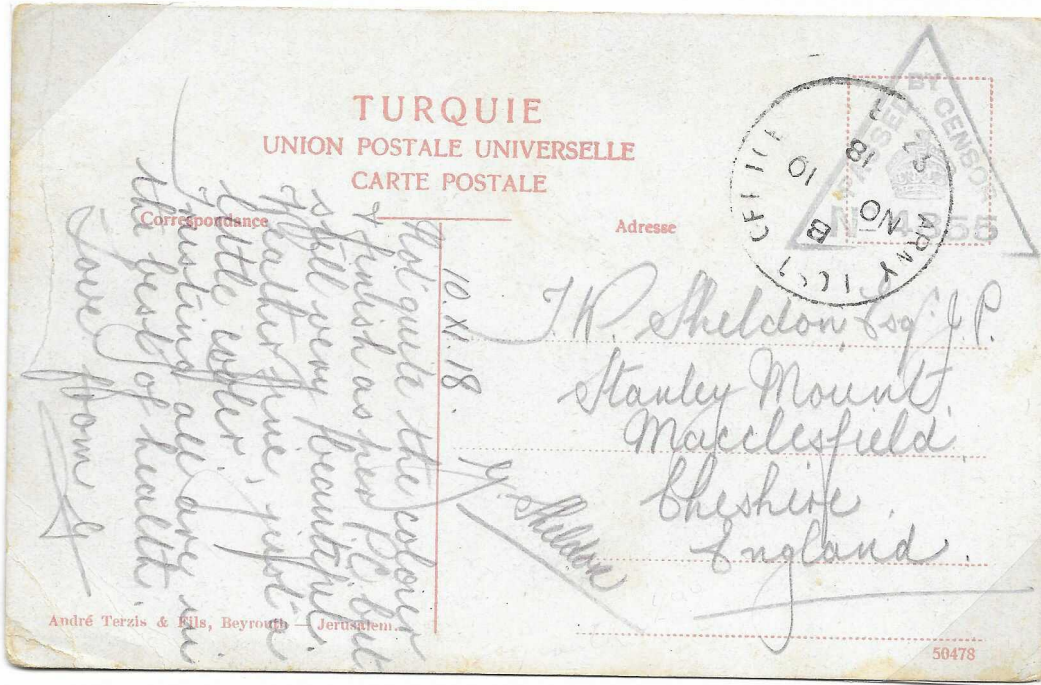 TURQUIE
UNION POSTALE UNIVERSELLE
CARTE POSTALE
Correspondance
Adresse
PASSED BY CENSOR
No 4855
ARMY POST OFFICE
B
10 NO 18
10. XI. 18.
Not quite the colour
& finish as per PC but
still very beautiful.
Weather fine, just a
little cooler.
Trusting all are in
the best of health.
Love from G
G. Sheldon
J.W. Sheldon Esq J.P.
Stanley Mount
Macclesfield
Cheshire
England.
André Terzis & Fils, Beyrouth — Jerusalem.
50478